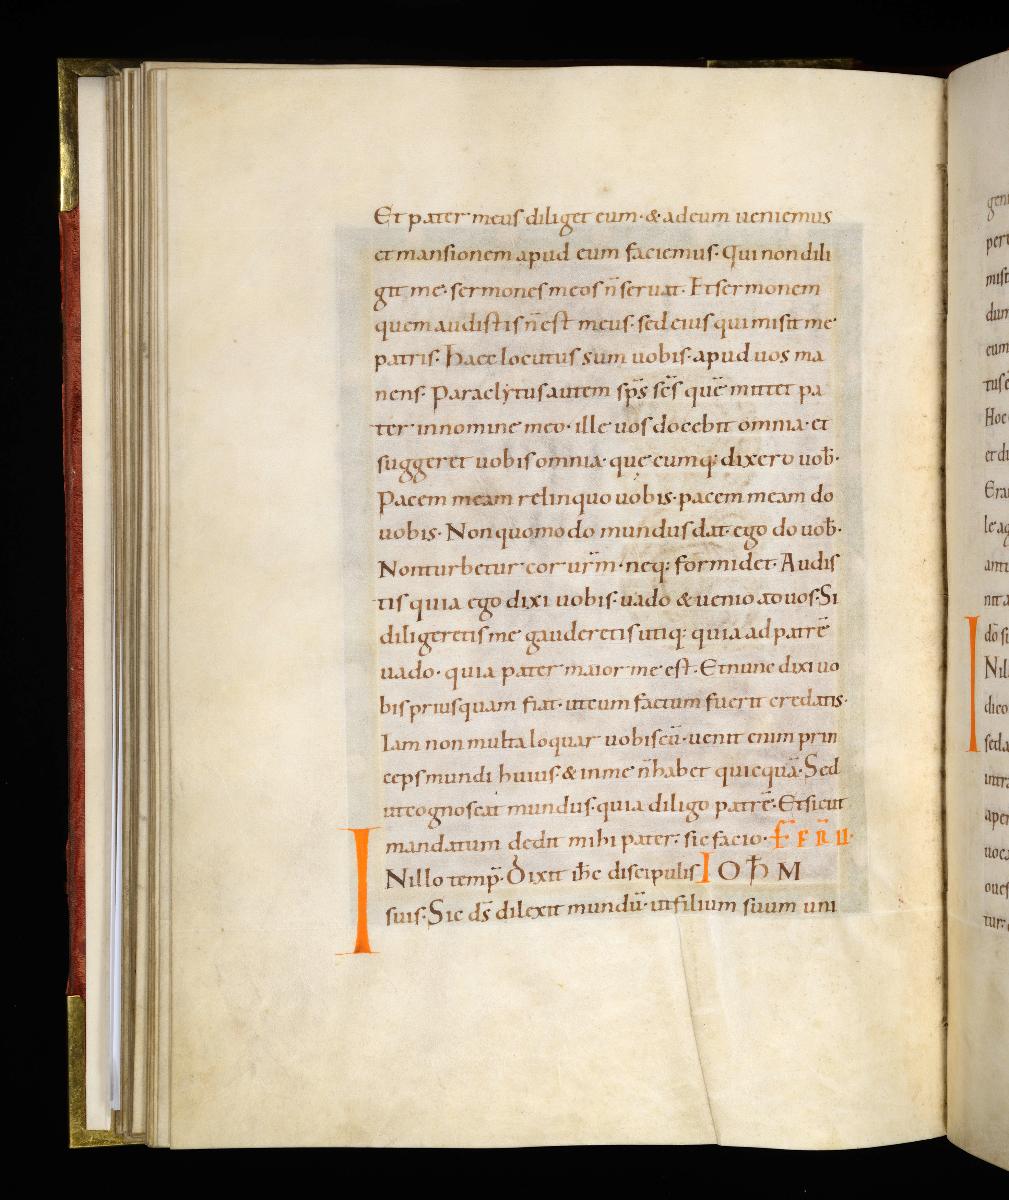 Et pater meus diliget eum· & adeum ueniemus
et mansionem apud eum faciemus· Qui non dili
git me· sermones meos n̄ seruat· Et sermonem
quem audistis n̄ est meus· sed eius qui misit me·
patris· Haec locutus sum uobis· apud uos ma
nens· Paraclẏtus autem sp̄s sc̄s quē mittet pa
ter in nomine meo· ille uos docebit omnia· et
suggeret uobis omnia· quecumq; dixero uob̄·
Pacem meam relinquo uobis· pacem meam do
uobis· Non quomodo mundus dat· ego do uob̄·
Non turbetur cor ur̄m· neq; formidet· Audis
tis quia ego dixi uobis· uado & uenio ad uos· Si
diligeretis me gauderetis utiq; quia ad patrē
uado· quia pater maior me est· Et nunc dixi uo
bis prius quam fiat· ut cum factum fuerit credatis·
Iam non multa loquar uobiscū· uenit enim prin
ceps mundi huius· & in me n̄ habet quicquā· Sed
ut cognoscat mundus· quia diligo patrē· Et sicut
mandatum dedit mihi pater· sic facio·
IN illo temp̄· Dixit ih̄c discipulis I O Ħ M
suis· Sic ds̄ dilexit mundū· ut filium suum uni